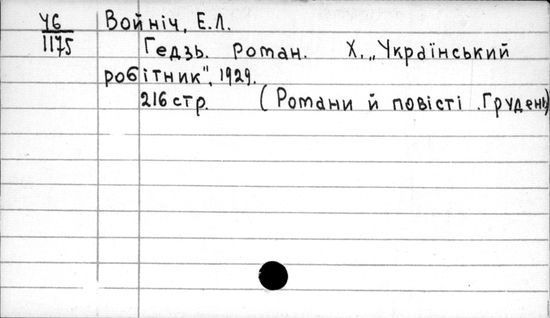 У6
1175
Войніч, Е.Л.
Гедзь. Роман. Х. „Український
робітник", 1929.
216 стр. (Романи й повісті. Грудень)